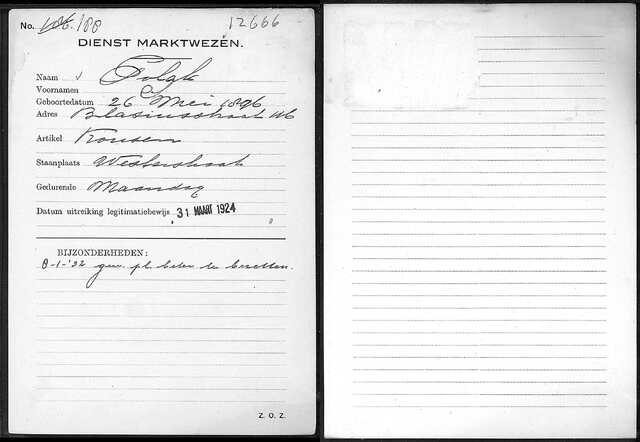 No. 188 12666
DIENST MARKTWEZEN.
Naam Polak
Voornamen C
Geboortedatum 26 Mei 1896
Adres Blasiusstraat
Artikel Kousen
Staanplaats Westerstraat
Gedurende Maandag
Datum uitreiking legitimatiebewijs 31 MAART 1924
BIJZONDERHEDEN:
8-1-'32 gew. pl. beter te bezetten.
Z. O. Z.